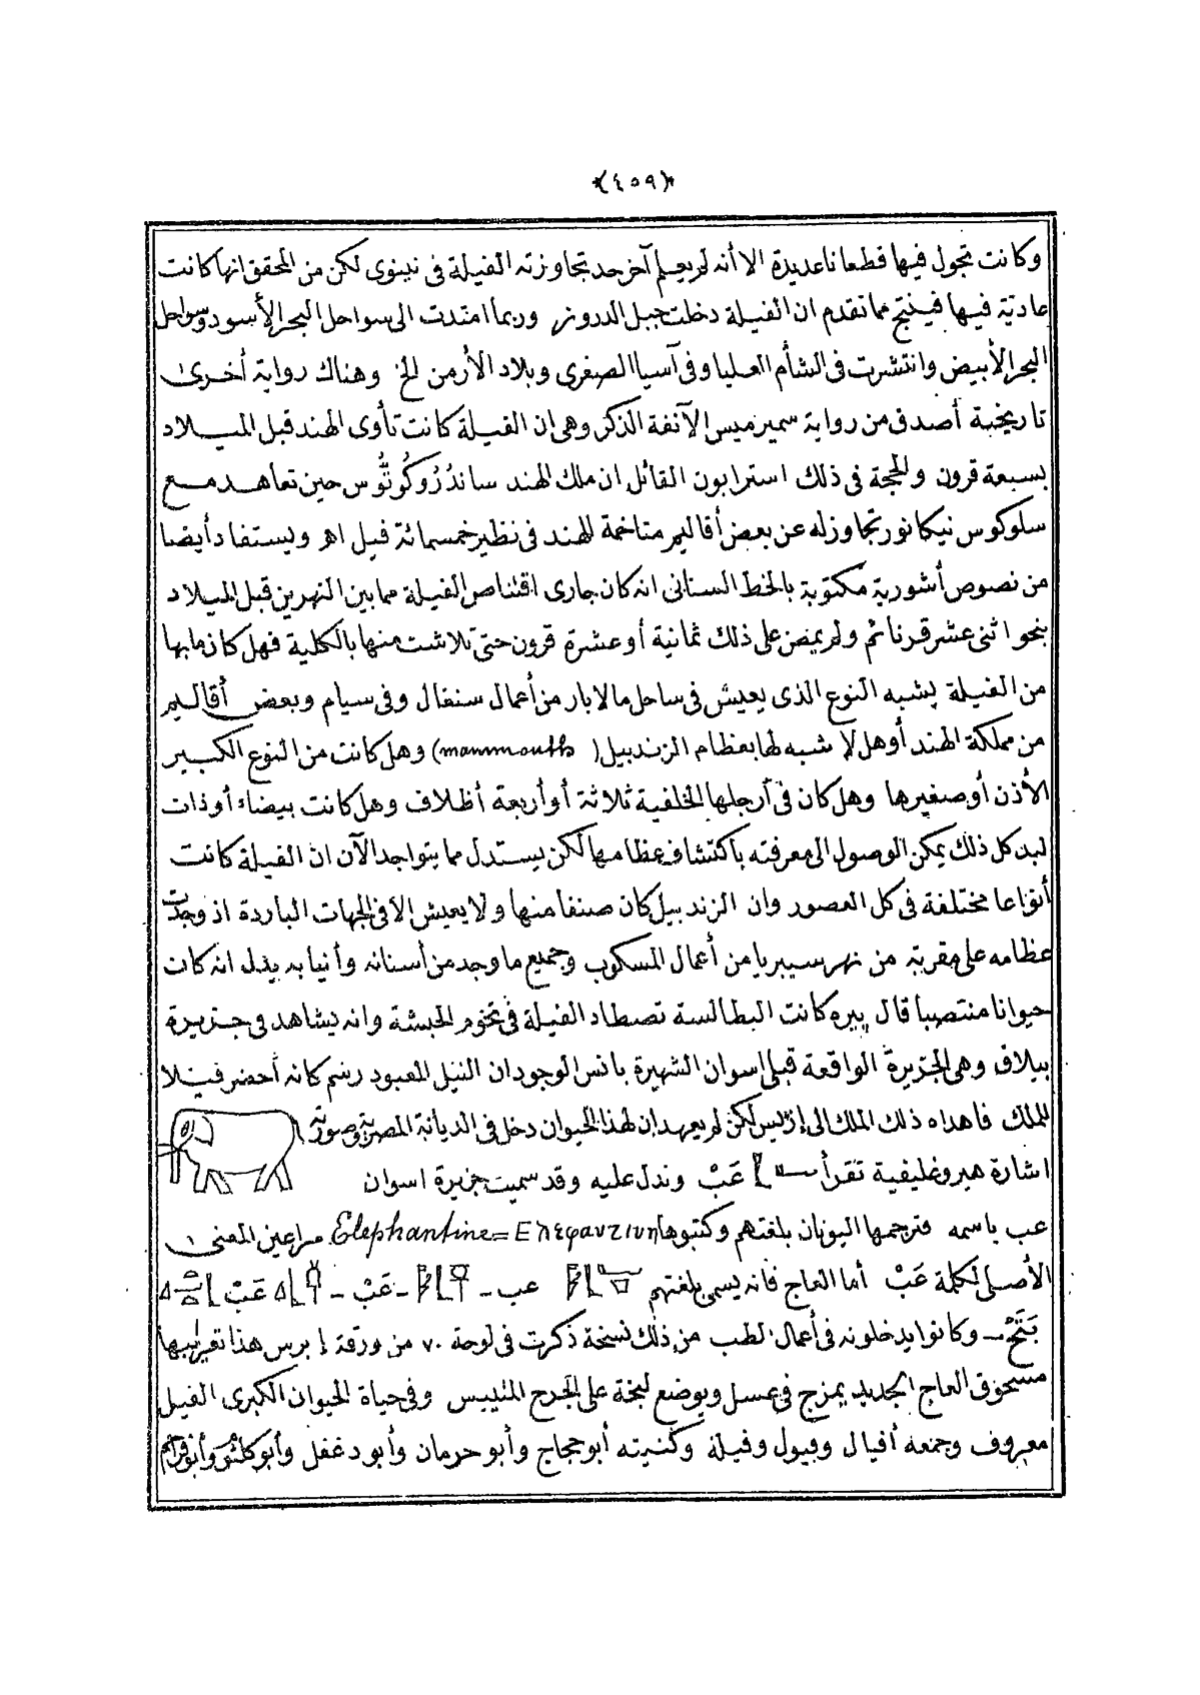 ﴿٤٥٩﴾
وكانت تجول فيها قطعانا عديدة الا أنه لم يعلم آخر حد تجاوزته الفيلة فى نينوى لكن من المحقق انها كانت
عادية فيها فينتج مما تقدم ان الفيلة دخلت جبل الدروز وربما امتدت الى سواحل البحر الأسود وسواحل
البحر الأبيض وانتشرت فى الشأم العليا وفى آسيا الصغرى وبلاد الأرمن الخ وهناك رواية أخرى
تاريخية أصدق من رواية سميرميس الآنفة الذكر وهى ان الفيلة كانت تأوى الهند قبل الميلاد
بسبعة قرون والحجة فى ذلك استرابون القائل ان ملك الهند ساندُرُوكُوتُّوس حين تعاهد مع
سلوكوس نيكانور تجاوز له عن بعض أقاليم متاخمة للهند فى نظير خمسمائة فيل اهـ ويستفاد أيضا
من نصوص أشورية مكتوبة بالخط السنانى انه كان جارى اقتناص الفيلة مما بين النهرين قبل الميلاد
بنحو اثنى عشر قرنا ثم ولم يمض على ذلك ثمانية أو عشرة قرون حتى تلاشت منها بالكلية فهل كان ما بها
من الفيلة يشبه النوع الذى يعيش فى ساحل مالابار من أعمال سنغال وفى سيام وبعض أقاليم
من مملكة الهند أو هل لا شبه لها بعظام الزندبيل (mammouth) وهل كانت من النوع الكبير
الأذن أو صغيرها وهل كان فى أرجلها الخلفية ثلاثة أو أربعة أظلاف وهل كانت بيضاء أو ذات
لبد كل ذلك يمكن الوصول الى معرفته باكتشاف عظامها لكن يستدل مما يتواجد الآن ان الفيلة كانت
أنواعا مختلفة فى كل العصور وان الزندبيل كان صنفا منها ولا يعيش الا فى الجهات الباردة اذ وجدت
عظامه على مقربة من نهر سيبريا من أعمال المسكوب وجميع ما وجد من أسنانه وأنيابه يدل انه كان
حيوانا منتصبا قال پيره كانت البطالسة تصطاد الفيلة فى تخوم الحبشة وانه يشاهد فى جزيرة
بيلاق وهى الجزيرة الواقعة قبلى اسوان الشهيرة بانس الوجود ان النيل المعبود رسم كانه أحضر فيلا
للملك فاهداه ذلك الملك الى إزيس لكن لم يعهد ان لهذا الحيوان دخل فى الديانة المصرية وصورته
اشارة هيروغليفية تقرأ عَبْ وتدل عليه وقد سميت جزيرة اسوان
عب باسمه فترجمها اليونان بلغتهم وكتبوها Elephantine = Ελεφαντινη مراعين المعنى
الأصلى لكلمة عَبْ أما العاج فانه يسمى بلغتهم عب – عَبْ – عَبْ
بَتَحْ – وكانوا يدخلونه فى أعمال الطب من ذلك نسخة ذكرت فى لوحة ٧٠ من ورقة إبرس هذا تعريبها
مسحوق العاج الجديد يمزج فى عسل ويوضع لبخة على الجرح المتيبس وفى حياة الحيوان الكبرى الفيل
معروف وجمعه أفيال وفيول وفيلة وكنيته أبو حجاج وأبو حرمان وأبو دغفل وأبو كلثوم وأبو مزاحم